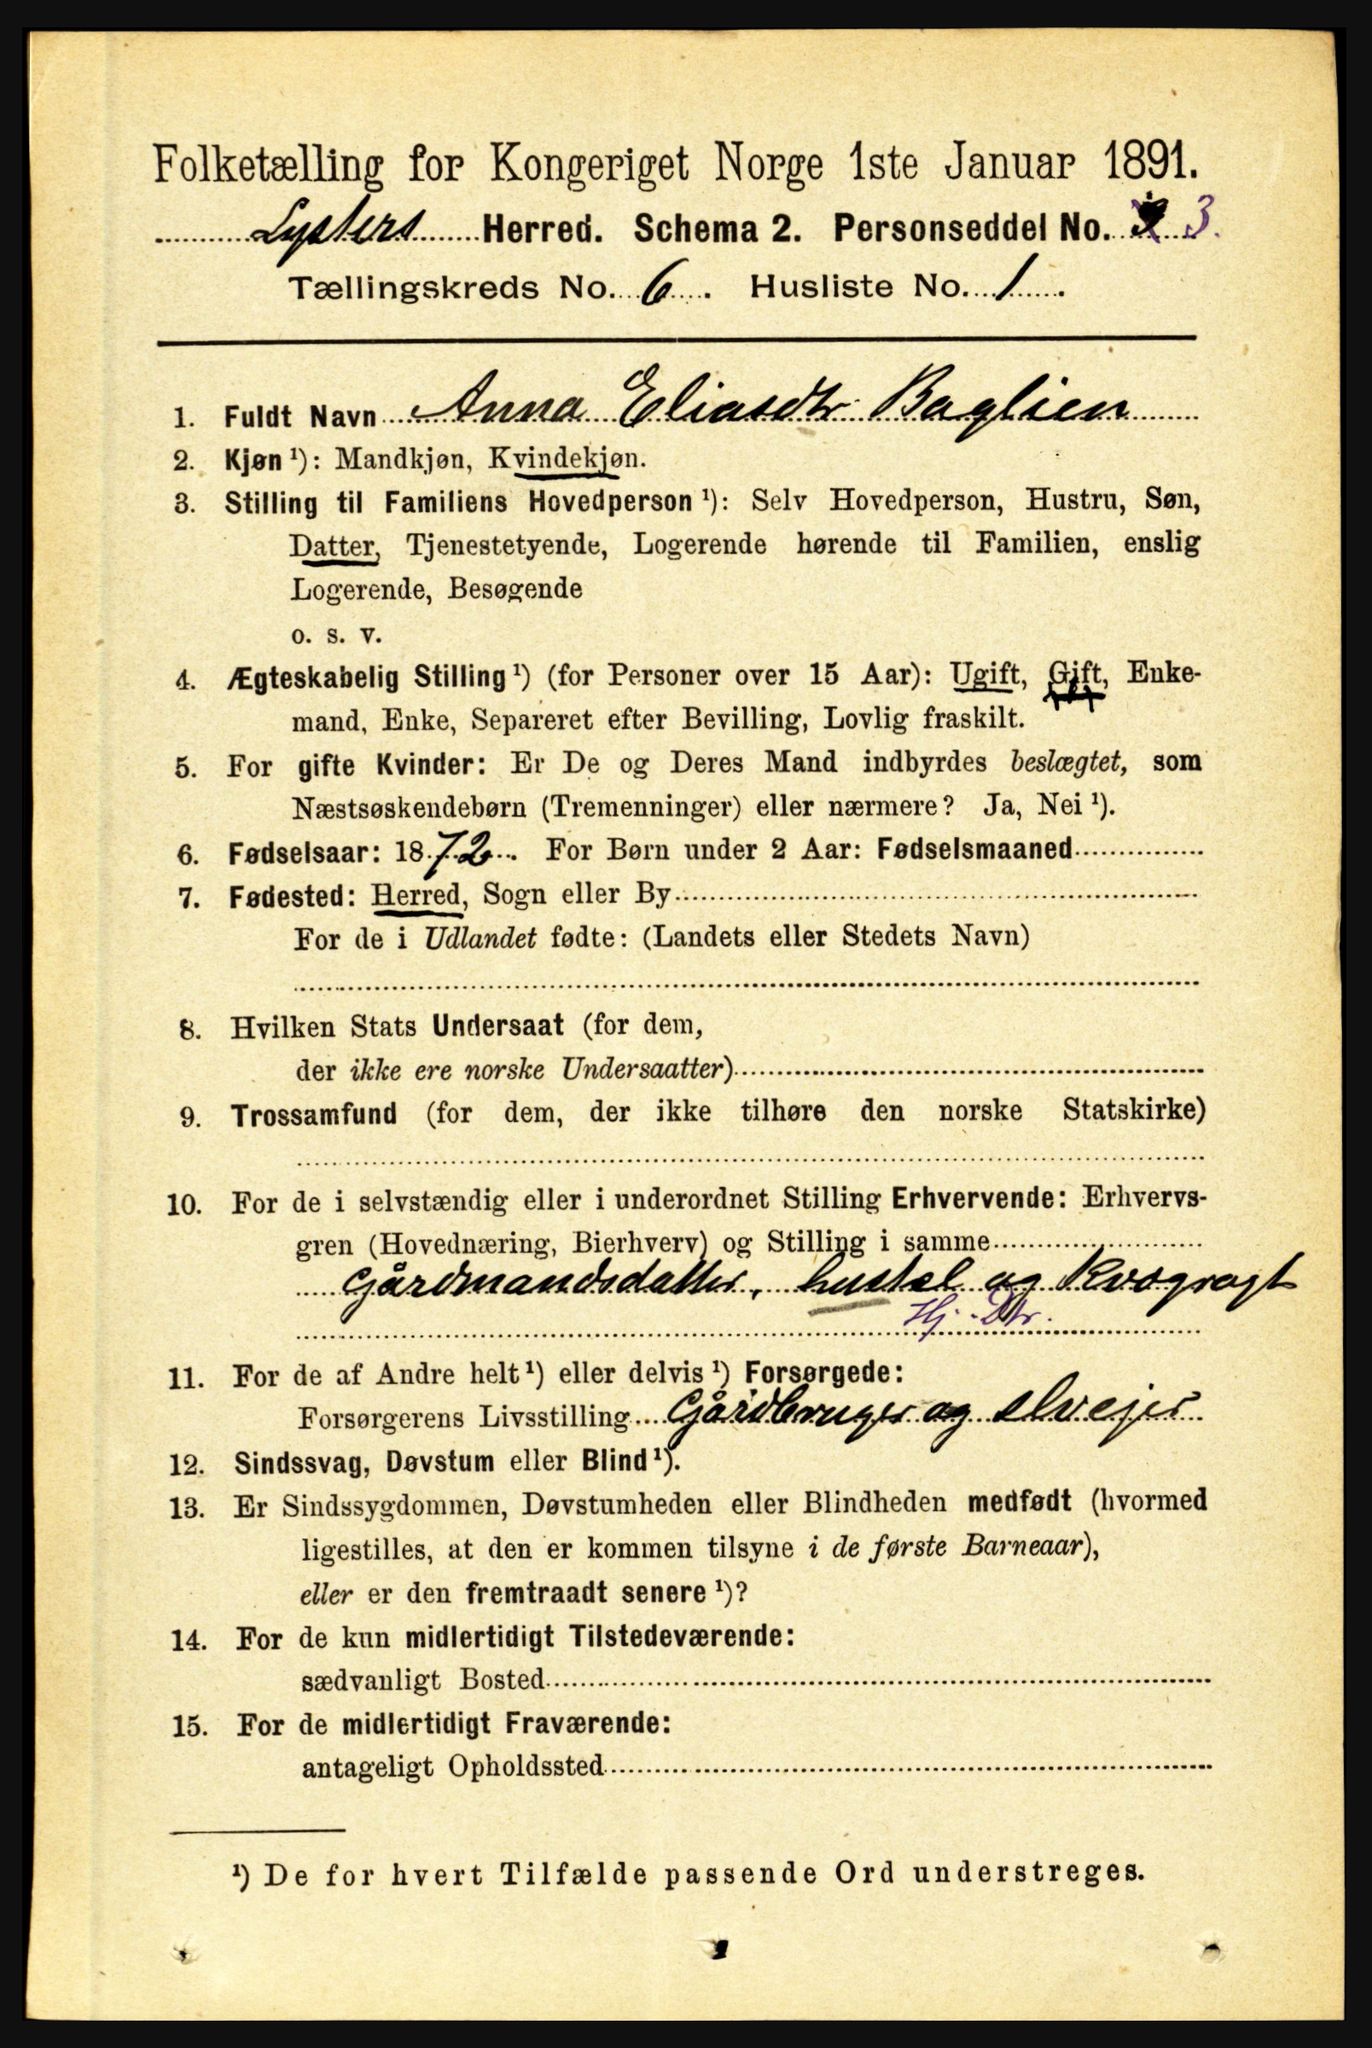 Folketælling for Kongeriget Norge 1ste Januar 1891.
Lysters Herred. Schema 2. Personseddel No. 3.
Tællingskreds No. 6. Husliste No. 1.
1. Fuldt Navn Anna Eliasdtr Baglien
2. Kjøn ¹): Mandkjøn, Kvindekjøn.
3. Stilling til Familiens Hovedperson ¹): Selv Hovedperson, Hustru, Søn,
Datter, Tjenestetyende, Logerende hørende til Familien, enslig
Logerende, Besøgende
o. s. v.
4. Ægteskabelig Stilling ¹) (for Personer over 15 Aar): Ugift, Gift, Enke-
mand, Enke, Separeret efter Bevilling, Lovlig fraskilt.
5. For gifte Kvinder: Er De og Deres Mand indbyrdes beslægtet, som
Næstsøskendebørn (Tremenninger) eller nærmere? Ja, Nei ¹).
6. Fødselsaar: 1872. For Børn under 2 Aar: Fødselsmaaned
7. Fødested: Herred, Sogn eller By
For de i Udlandet fødte: (Landets eller Stedets Navn)
8. Hvilken Stats Undersaat (for dem,
der ikke ere norske Undersaatter)
9. Trossamfund (for dem, der ikke tilhøre den norske Statskirke)
10. For de i selvstændig eller i underordnet Stilling Erhvervende: Erhvervs-
gren (Hovednæring, Bierhverv) og Stilling i samme
Gårdmandsdatter, hustel og Kvægrøgt
Hj. Dtr.
11. For de af Andre helt ¹) eller delvis ¹) Forsørgede:
Forsørgerens Livsstilling Gårdbruger og selvejer
12. Sindssvag, Døvstum eller Blind ¹).
13. Er Sindssygdommen, Døvstumheden eller Blindheden medfødt (hvormed
ligestilles, at den er kommen tilsyne i de første Barneaar),
eller er den fremtraadt senere ¹)?
14. For de kun midlertidigt Tilstedeværende:
sædvanligt Bosted
15. For de midlertidigt Fraværende:
antageligt Opholdssted
¹) De for hvert Tilfælde passende Ord understreges.